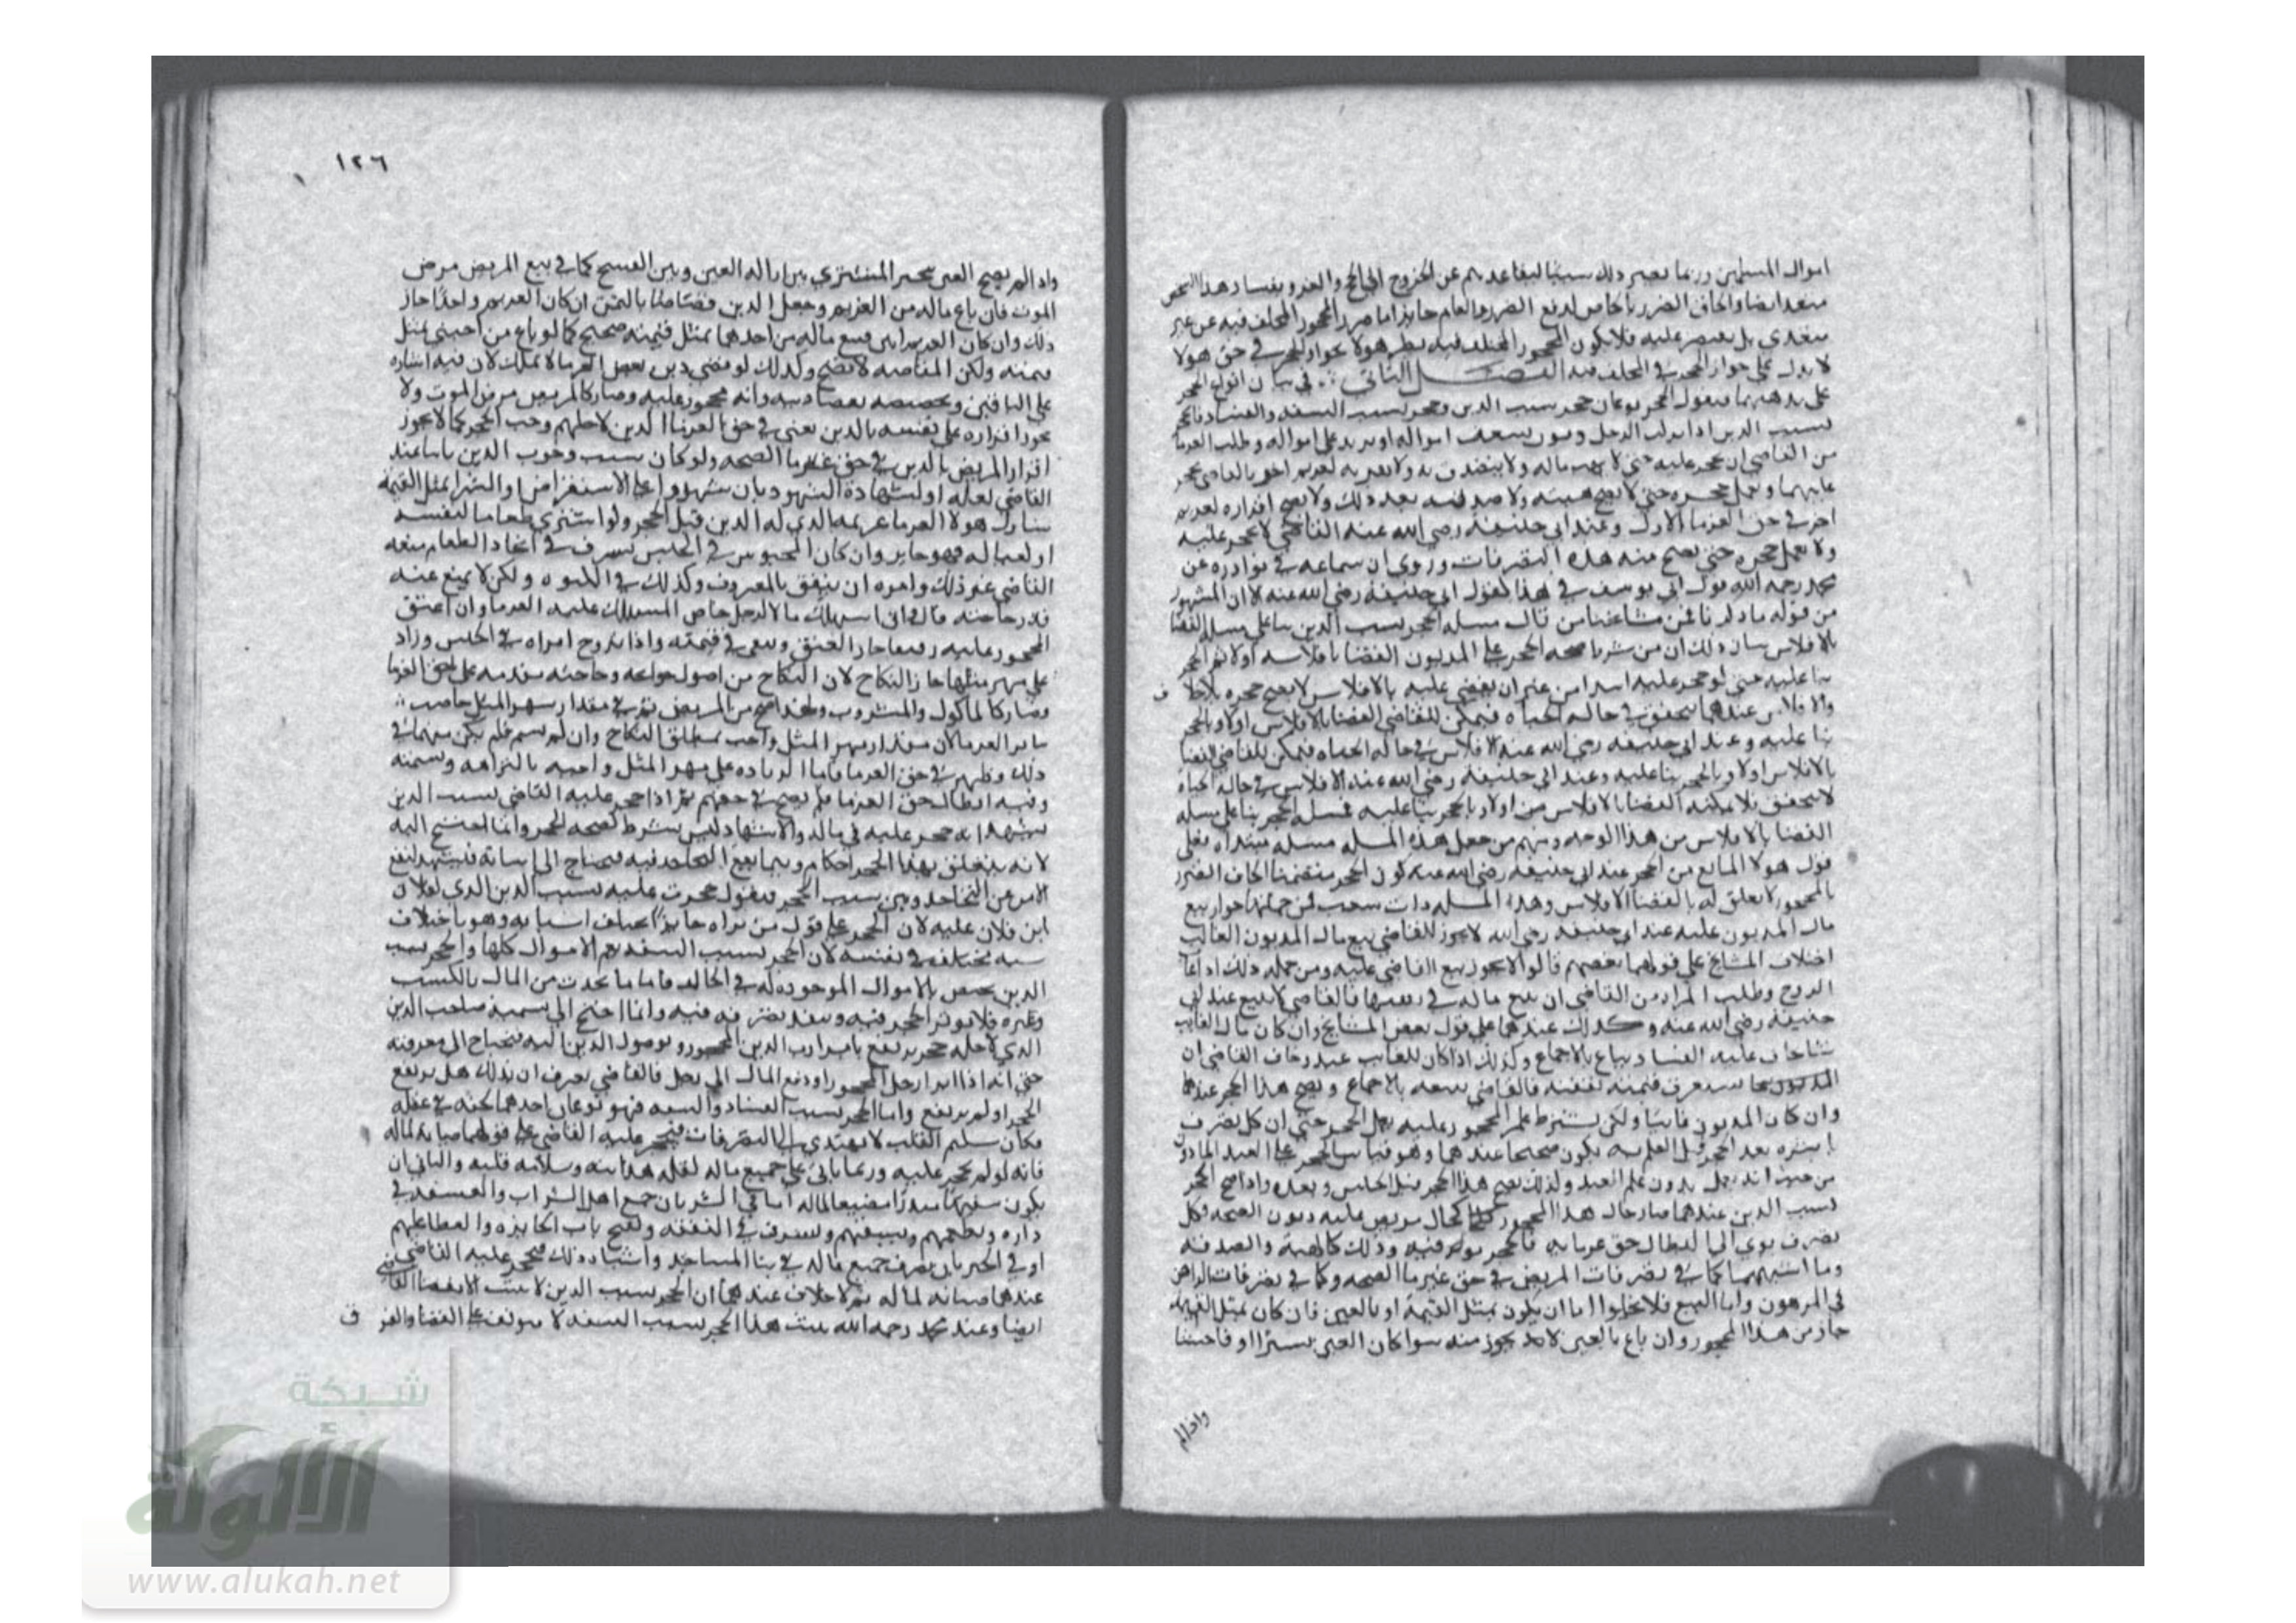 اموال المسلمين وربما يصير ذلك سببا لتقاعدهم عن الخروج الى الحج والغزو وفساد هذا الشخص
متعد ايضا والحاق الضرر بالخاص لدفع الضرر العام جايز اما ضرر المحجور المختلف فيه عن غير
متعدي بل يقتصر عليه فلا يكون المحجور المختلف فيه نظير هولا فجواز الحجر في حق هولا
لا يدل على جواز الحجر في المختلف فيه الفصل الثاني في بيان انواع الحجر
على مذهبهما فنقول الحجر نوعان حجر بسبب الدين وحجر بسبب السفه والفساد فالحجر
بسبب الدين اذا ركب الرجل ديون تستغرق امواله او يزيد على امواله وطلب الغرما
من القاضي ان يحجر عليه حتى لا يهب ماله ولا يتصدق به ولا يقر به لغريم اخر فالقاضي يحجر
عليه عندهما ويعمل حجره حتى لا يصح هبته ولا صدقته بعد ذلك ولا يصح اقراره لغريم
اخر في حق الغرما الاول وعند ابي حنيفة رضي الله عنه القاضي لا يحجر عليه
ولا يعمل حجره حتى يصح منه هذه التصرفات وروى ابن سماعه في نوادره عن
محمد رحمه الله قول ابي يوسف في هذا كقول ابي حنيفة رضي الله عنه لا ان المشهور
من قوله ما ذكرنا فمن مشايخنا من قال مسله الحجر بسبب الدين بنا على مسله القضا
بالافلاس بيان ذلك ان من شرط صحه الحجر على المديون القضا بافلاسه اولا ثم الحجر
بنا عليه حتى لو حجر عليه ابتدا من غير ان يقضي عليه بالافلاس لا يصح حجره بلا خلا ف
والافلاس عندهما يتحقق في حاله الحياه فيمكن للقاضي القضا بالافلاس اولا وبالحجر
بنا عليه وعند ابي حنيفه رضي الله عنه الافلاس في حاله الحياه فيمكن للقاضي القضا
بالافلاس اولا وبالحجر بنا عليه وعند ابي حنيفة رضي الله عنه الافلاس في حاله الحياه
لا يتحقق فلا يمكنه القضا بالافلاس من اولا وبالحجر بنا عليه فمسله الحجر بنا على مسله
القضا بالافلاس من هذا الوجه ومنهم من جعل هذه المسله مسله مبتداه فعلى
قول هولا المانع من الحجر عند ابي حنيفه رضي الله عنه كون الحجر متضمنا الحاق الضرر
بالمحجور لا تعلق له بالقضا بالافلاس وهذه المسله ذات شعب فمن جملتها جواز بيع
مال المديون عليه عند ابي حنيفه رضي الله لا يجوز للقاضي بيع مال المديون الغايب
اختلاف المشايخ على قولهما بعضهم قالوا لا يجوز بيع القاضي عليه ومن جمله ذلك اذا غاب
الزوج وطلبت المراة من القاضي ان يبيع ماله في نفقتها فالقاضي لا يبيع عند ابي
حنيفه رضي الله عنه وكذلك عندهما على قول بعض المشايخ وان كان مال الغايب
شيا يخاف عليه الفساد يباع بالاجماع وكذلك اذا كان للغايب عبد وخاف القاضي ان
تستغرق قيمته نفقته فالقاضي يبيعه بالاجماع ويصح هذا الحجر عندهما
وان كان المديون غايبا ولكن يشترط علم المحجور عليه بعمل الحجر حتى ان كل تصرف
باشره بعد الحجر قبل العلم به يكون صحيحا عندهما وهو قياس الحجر على العبد الماذون
من حيث انه يعمل بدون علم العبد وكذلك يصح هذا الحجر قبل الحبس وبعده واذا صح الحجر
بسبب الدين عندهما صار حال هذا المحجور كحال مريض عليه ديون الصحه فكل
تصرف يودي الى ابطال حق غرمايه فالحجر يوثر فيه وذلك كالهبة والصدقة
وما اشبههما كما في تصرفات المريض في حق غرما الصحه وكما في تصرفات الراهن
في المرهون واما البيع فلا يخلوا اما ان يكون بمثل القيمة او بالغبن فان كان بمثل القيمه
جاز من هذا المحجور وان باع بالغبن لا يجوز منه سوا كان الغبن يسيرا او فاحشا
واذا لم
١٢٦
واذا لم يصح الغبن يتخير المشتري بين ازالة الغبن وبين الفسخ كما في بيع المريض مرض
الموت فان باع ماله من الغريم وجعل الدين قصاصا بالثمن ان كان الغريم واحدا جاز
ذلك وان كان الغريم اثنين فبيع ماله من احدهما بمثل قيمته صحيح كما لو باع من اجنبي بمثل
قيمته ولكن المقاصه لا تصح وكذلك لو قضى دين بعض الغرما لا يملك لان فيه ايثاره
على الباقين وتخصيصه بقضا دينه وانه محجور عليه وصار كالمريض مرض الموت ولا
يجوز اقراره على نفسه بالدين يعني في حق الغرما الذين لاجلهم وجب الحجر كما لا يجوز
اقرار المريض بالدين في حق غرما الصحه ولو كان سبب وجوب الدين ثابتا عند
القاضي بعلمه او بشهادة الشهود بان شهدوا على الاستقراض او الشرا بمثل القيمة
شارك هولا الغرما غريمه الذي له الدين قبل الحجر ولو اشترى طعاما لنفسه
او لعياله فهو جايز وان كان المحبوس في الحبس يسرف في اتخاذ الطعام منعه
القاضي عن ذلك وامره ان ينفق بالمعروف وكذلك في الكسوه ولكن لا يمنع عنه
قدر حاجته قال وان استهلك مالا لرجل خاص المستهلك عليه الغرما وان اعتق
المحجور عليه رقيقا جاز العتق ويسعى في قيمته واذا تزوج امراه في الحبس وزاد
على مهر مثلها جاز النكاح لان النكاح من اصول حوايجه وحاجته مقدمه على حق الغرما
وصار كالماكول والمشروب ولهذا صح من المريض ثم في مقدار مهر المثل خاصت
ساير الغرما لان مقدار مهر المثل واجب بمطلق النكاح وان لم يسم فلم يكن متهما في
ذلك وظهر في حق الغرما فاما الزياده على مهر المثل واجبه بالتزامه وتسميته
وفيه ابطال حق الغرما فلم يصح في حقهم ثم اذا حجر عليه القاضي بسبب الدين
يشهد انه حجر عليه في ماله والاشهاد ليس بشرط لصحه الحجر وانما احتيج اليه
لانه يتعلق بهذا الحجر احكام وربما يقع التجاحد فيه فيحتاج الى اثباته فيشهد ليقع
الامن عن التجاحد ويبين سبب الحجر فيقول حجرت عليه بسبب الدين الذي لفلان
ابن فلان عليه لان الحجر على قول من يراه جايزا يختلف اسبابه وهو باختلاف
سببه يختلف في نفسه لان الحجر بسبب السفه يعم الاموال كلها والحجر بسبب
الدين يختص بالاموال الموجوده له في الحال فاما ما يحدث من المال بالكسب
وغيره فلا يوثر الحجر فيه وينفذ تصرفه فيه وانما احتيج الى تسمية صاحب الدين
الذي لاجله حجر يرتفع بابرا رب الدين المحجور وبوصول الدين اليه فيحتاج الى معرفته
حتى انه اذا ابرا رجل المحجور او دفع المال الى رجل فالقاضي يعرف ان بذلك هل يرتفع
الحجر او لم يرتفع واما الحجر بسبب الفساد والسفه فهو نوعان احدهما لخفه في عقله
فكان سليم القلب لا يهتدي الى التصرفات فيحجر عليه القاضي على قولهما صيانة لماله
فانه لو لم يحجر عليه وربما ياتي على جميع ماله لقلة هدايته وسلامه قلبه والثاني ان
يكون سفيها مبذرا مضيعا لماله اما في الشر بان جمع اهل الشراب والفسقه في
داره ويطعمهم ويسقيهم ويسرف في النفقه ويفتح باب الجايزه والعطا عليهم
او في الخير بان يصرف جميع ماله في بنا المساجد واشباه ذلك فيحجر عليه القاضي
عندهما صيانه لماله ثم لا خلاف عندهما ان الحجر بسبب الدين لا يثبت الا بقضا القاضي
ايضا وعند محمد رحمه الله يثبت هذا الحجر بسبب السفه لا يتوقف على القضا والفر ق
شبكة
الألوكة
www.alukah.net